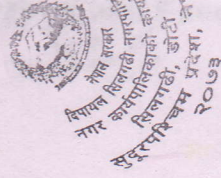 नेपाल सरकार
दिपायल सिलगढी नगरपालिका
नगर कार्यपालिकाको
सिलगढी, डोटी
सुदूरपश्चिम प्रदेश,
२०७३